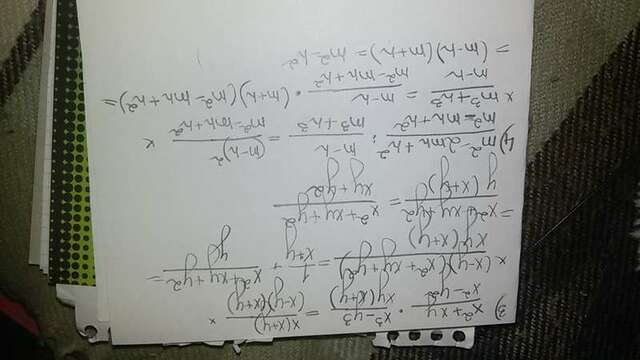 3) (x²+xy)/(x²-y²) · (x³-y³)/(xy(x+y)) = x(x+y)/((x-y)(x+y)) ×
× (x-y)(x²+xy+y²)/(xy(x+y)) = 1/(x+y) + (x²+xy+y²)/y =
= (x²+xy+y²)/(y(x+y)) = (x²+xy+y²)/(xy+y²)
4) (m²-2mn+n²)/(m²-mn+n²) : (m-n)/(m³+n³) = (m-n)²/(m²-mn+n²) ×
× (m³+n³)/(m-n) = (m-n)/(m²-mn+n²) · (m+n)(m²-mn+n²) =
= (m-n)(m+n) = m²-n²